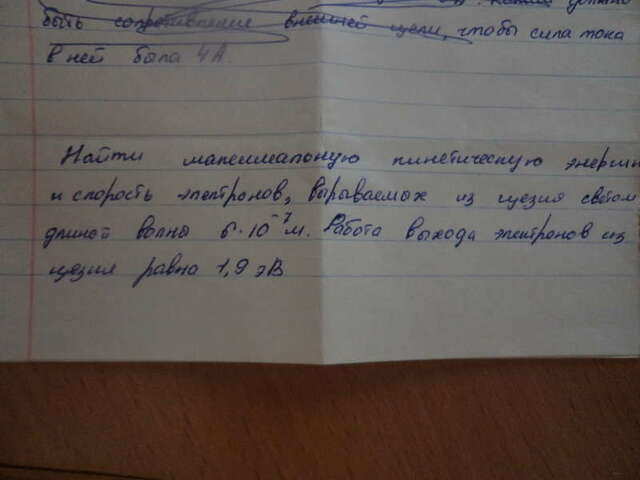 должно
быть сопротивление внешней цепи, чтобы сила тока
в ней была 4 А.
Найти максимальную кинетическую энергию
и скорость электронов, вырываемых из цезия светом
длиной волны 6·10⁻⁷ м. Работа выхода электронов из
цезия равна 1,9 эВ